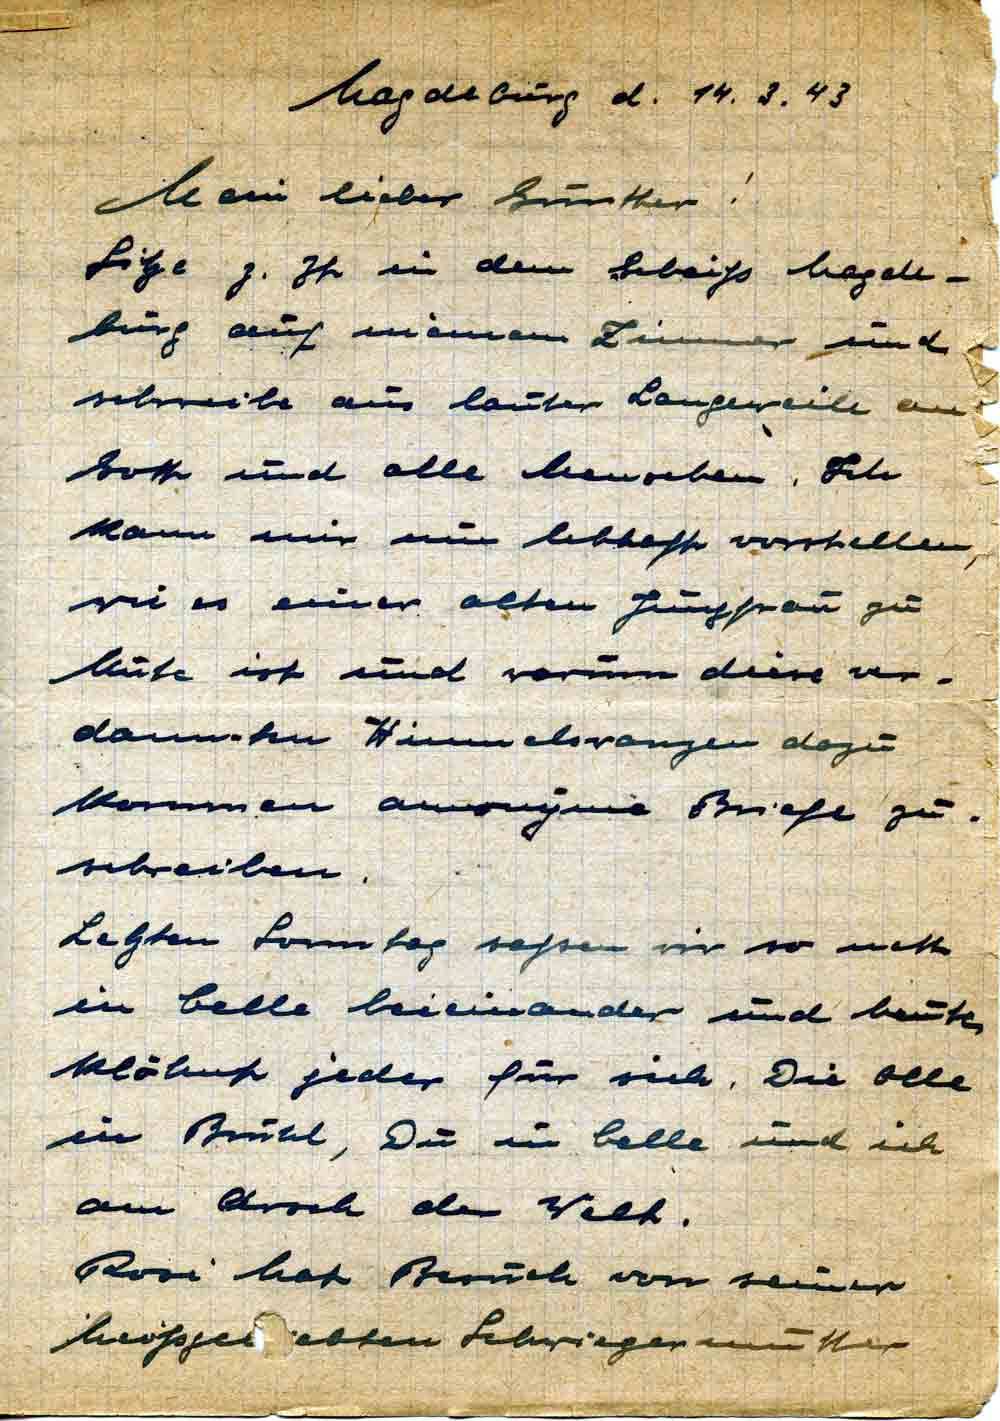 Magdeburg d. 14.3.43
Mein lieber Günther!
Sitze z. Zt in dem Scheiss Magde-
burg auf meinem Zimmer und
schreibe aus lauter Langeweile an
Gott und alle Menschen. Ich
kann mir nun lebhaft vorstellen,
wie es einer alten Jungfrau zu
Mute ist und warum diese ver-
dammten Himmelswanzen dazu
kommen anonyme Briefe zu
schreiben.
Letzten Sonntag sassen wir so nett
in Celle beieinander und heute
klöhnt jeder für sich. Die Olle
in Brühl, Du in Celle und ich
am Arsch der Welt.
Rosi hat Besuch von seiner
heissgeliebten Schwiegermutter